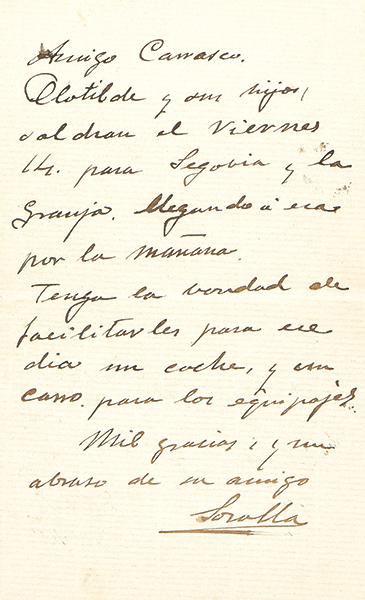 Amigo Carrasco.
Clotilde y mis hijos,
saldran el Viernes
14. para Segovia y la
Granja. llegando á esa
por la mañana.
Tenga la bondad de
facilitarles para ese
dia un coche, y un
carro. para los equipajes
Mil gracias, y un
abraso de su amigo
Sorolla